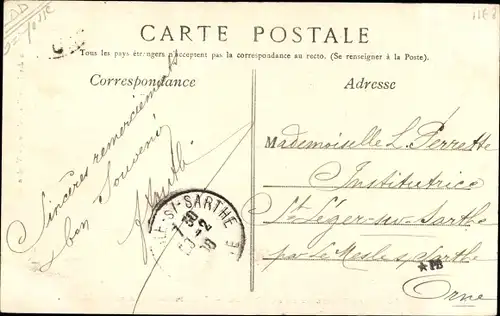 CARTE POSTALE
Tous les pays étrangers n'acceptent pas la correspondance au recto. (Se renseigner à la Poste).
Correspondance
Adresse
Sincères remerciements
& bon Souvenir
Mademoiselle L. Perrette
Institutrice
St Léger-sur-Sarthe
par Le Mesle s/ Sarthe
Orne
-S/-SARTHE
7 30
PB